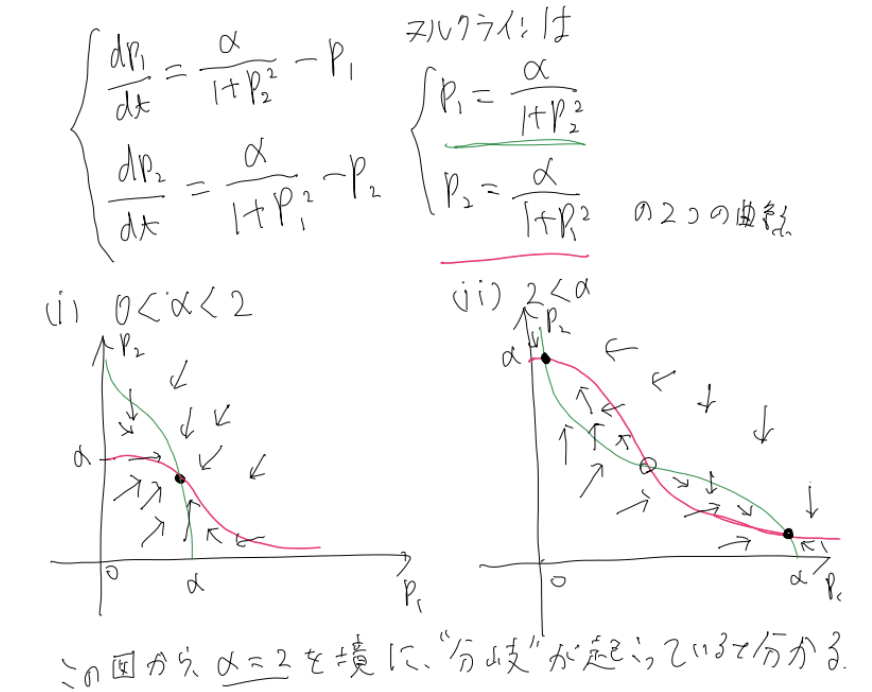 dp₁/dt = α/(1+p₂²) − p₁
dp₂/dt = α/(1+p₁²) − p₂
ヌルクラインは
p₁ = α/(1+p₂²)
p₂ = α/(1+p₁²) の2つの曲線
(i) 0<α<2
p₂
α
0
α
p₁
(ii) 2<α
p₂
α
0
α
p₁
この図から、α=2を境に、"分岐"が起こっていると分かる.